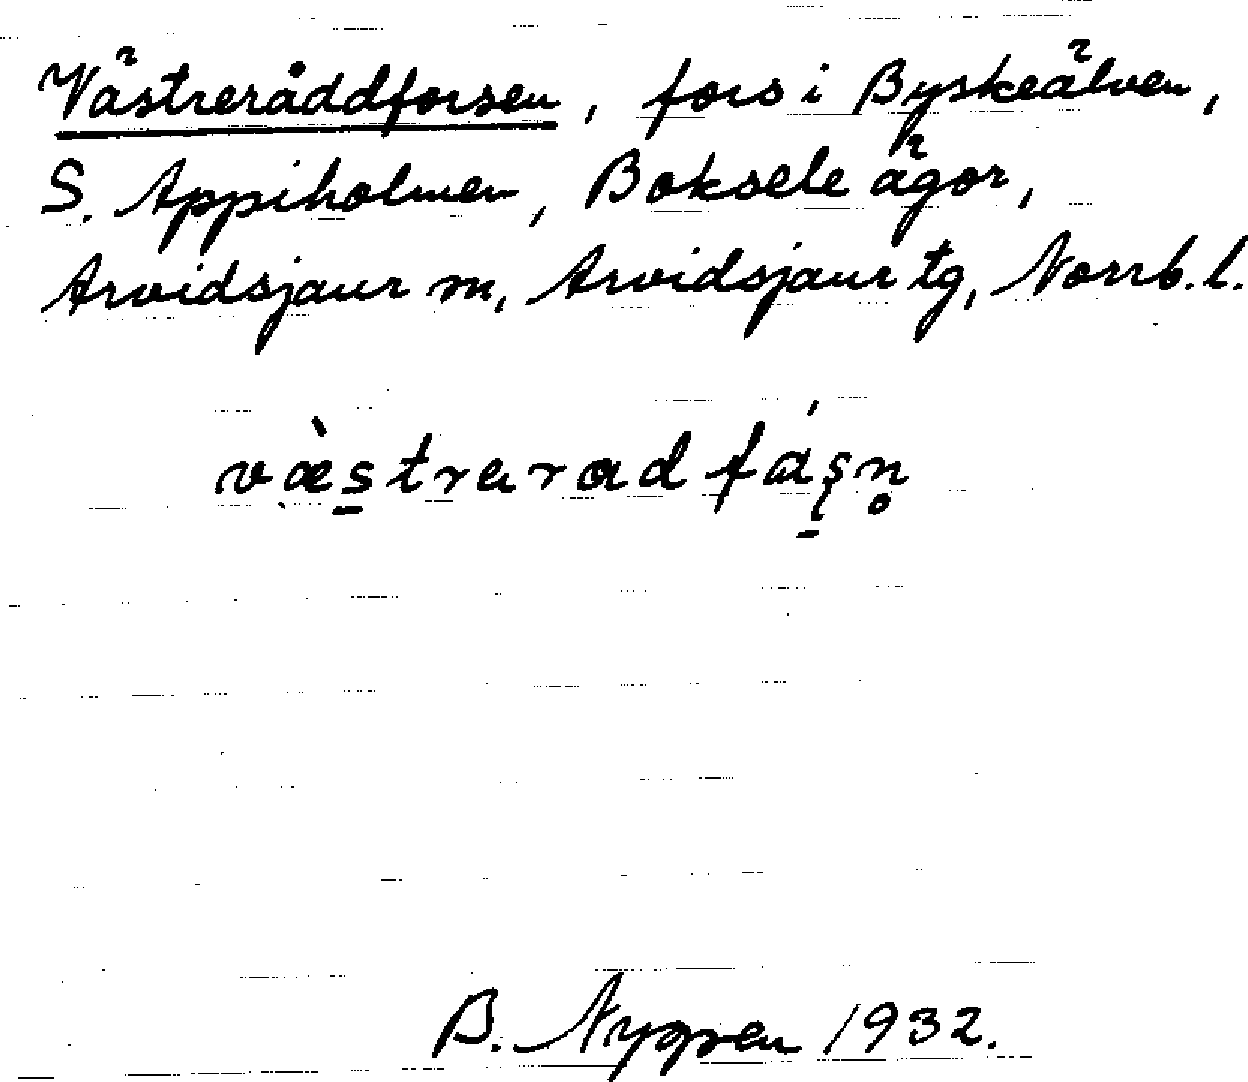 Västreråddforsen, fors i Byskeälven,
S. Appiholmen, Boksele ägor,
Arvidsjaur sn, Arvidsjaur tg, Norrb. l.
væ̀streradfáşn̥
B. Nygren 1932.